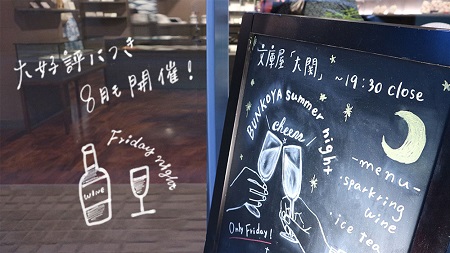 大好評につき
8月も開催！
Friday night
WINE
文庫屋「大関」 ~19:30 close
BUNKOYA summer night
cheers
-menu-
・sparkring
wine
・ice tea
Only Friday!